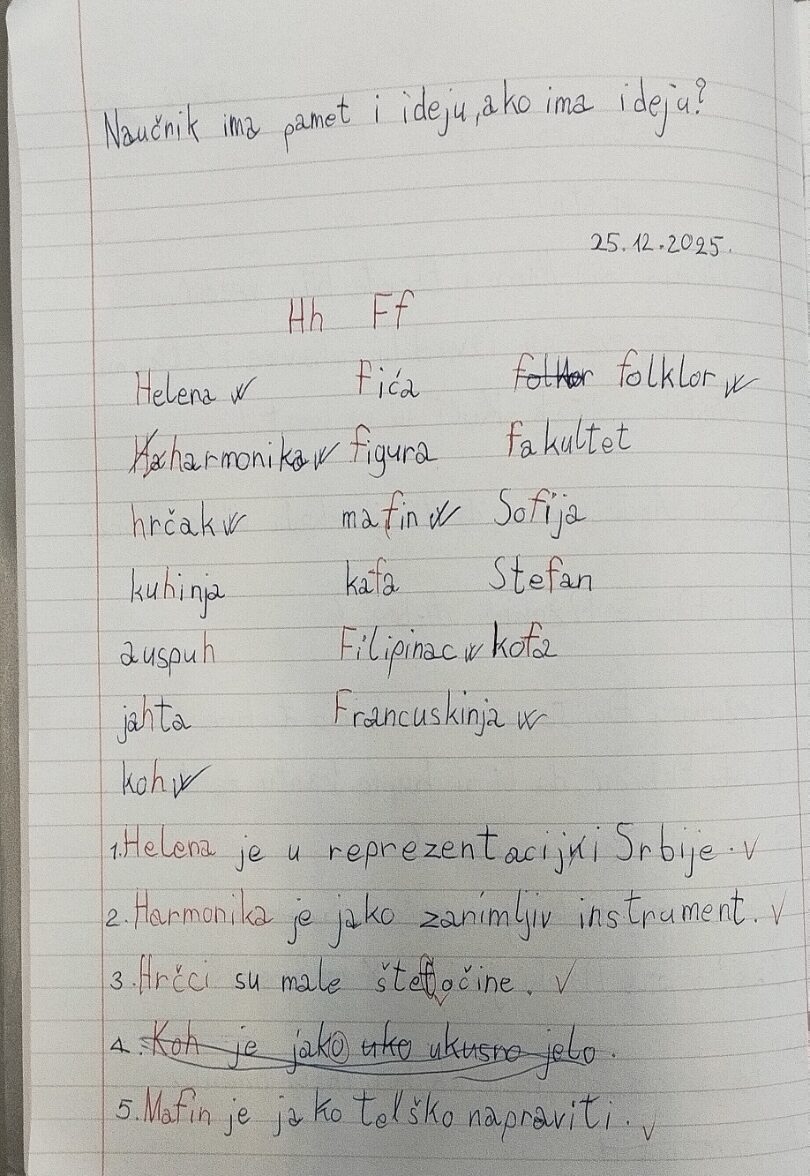 Naučnik ima pamet i ideju, ako ima ideju?
25.12.2025.
Hh Ff
Helena Fića folklor
harmonika figura fakultet
hrčak mafin Sofija
kuhinja kafa Stefan
auspuh Filipinac kofa
jahta Francuskinja
koh
1. Helena je u reprezentaciji Srbije.
2. Harmonika je jako zanimljiv instrument.
3. Hrčci su male štetočine.
4. Koh je jako uko ukusno jelo.
5. Mafin je jako telško napraviti.